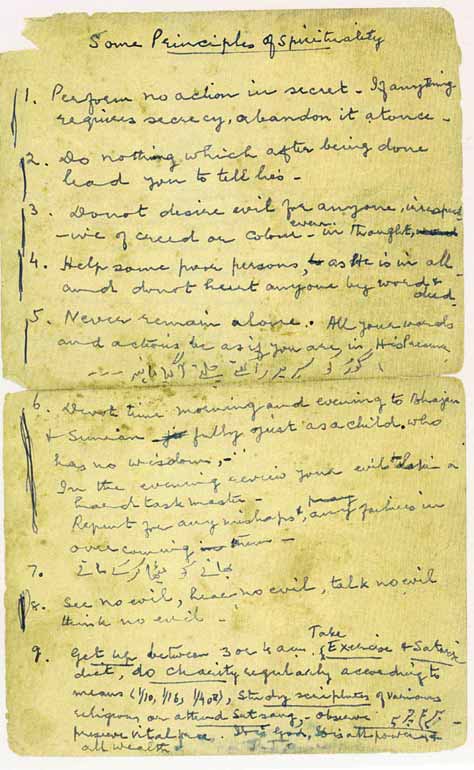 Some Principles of Spirituality
1. Perform no action in secret - If anything
requires secrecy, abandon it at once -
2. Do nothing which after being done
lead you to tell lies -
3. Do not desire evil for anyone, irrespect
-ive of creed or colour - even in thought,
4. Help some poor persons, as He is in all
and do not hurt anyone by word & deed.
5. Never remain alone. All your words
and actions be as if you are in His Presence
6. Devote time morning and evening to Bhajan
& Simran fully just as a child who
has no wisdom, -
In the evening review your evil like a
hard task master -
Repent for any mishaps & any failures in
overcoming them -
7.
8. See no evil, hear no evil, talk no evil
think no evil -
9. Get up between 3 or 4 am. Take Exercise & Satvic
diet, do charity regularly according to
means (1/10, 1/16, 1/40th), Study scriptures of various
religions or attend Satsang, - observe
preserve vital force. It is God, It is all power &
all wealth.